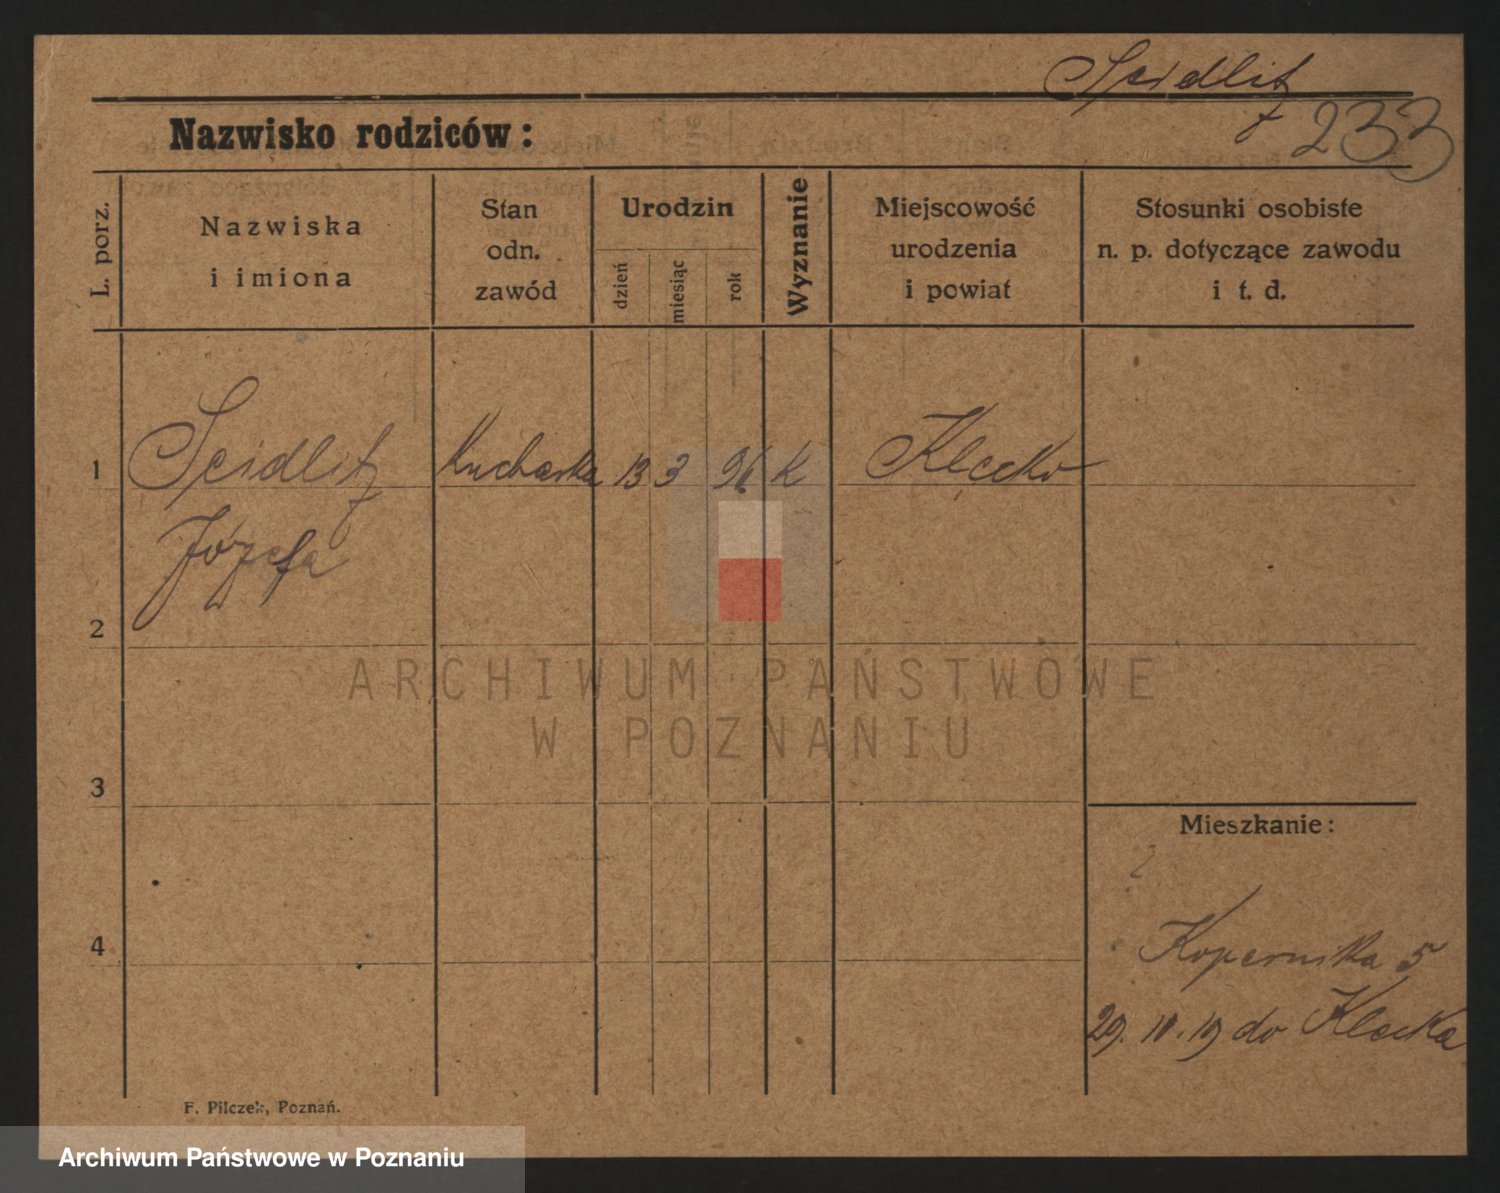 Seidlitz
233
Nazwisko rodziców:
L. porz.
Nazwiska
i imiona
Stan
odn.
zawód
Urodzin
dzień
miesiąc
rok
Wyznanie
Miejscowość
urodzenia
i powiat
Stosunki osobiste
n. p. dotyczące zawodu
i t. d.
1 Seidlitz Kucharka 13 3 96 K Klecko
Józefa
2
ARCHIWUM PAŃSTWOWE
W POZNANIU
3
Mieszkanie:
Kopernika 5
4
29. 10. 19 do Klecka
F. Pilczek, Poznań.
Archiwum Państwowe w Poznaniu